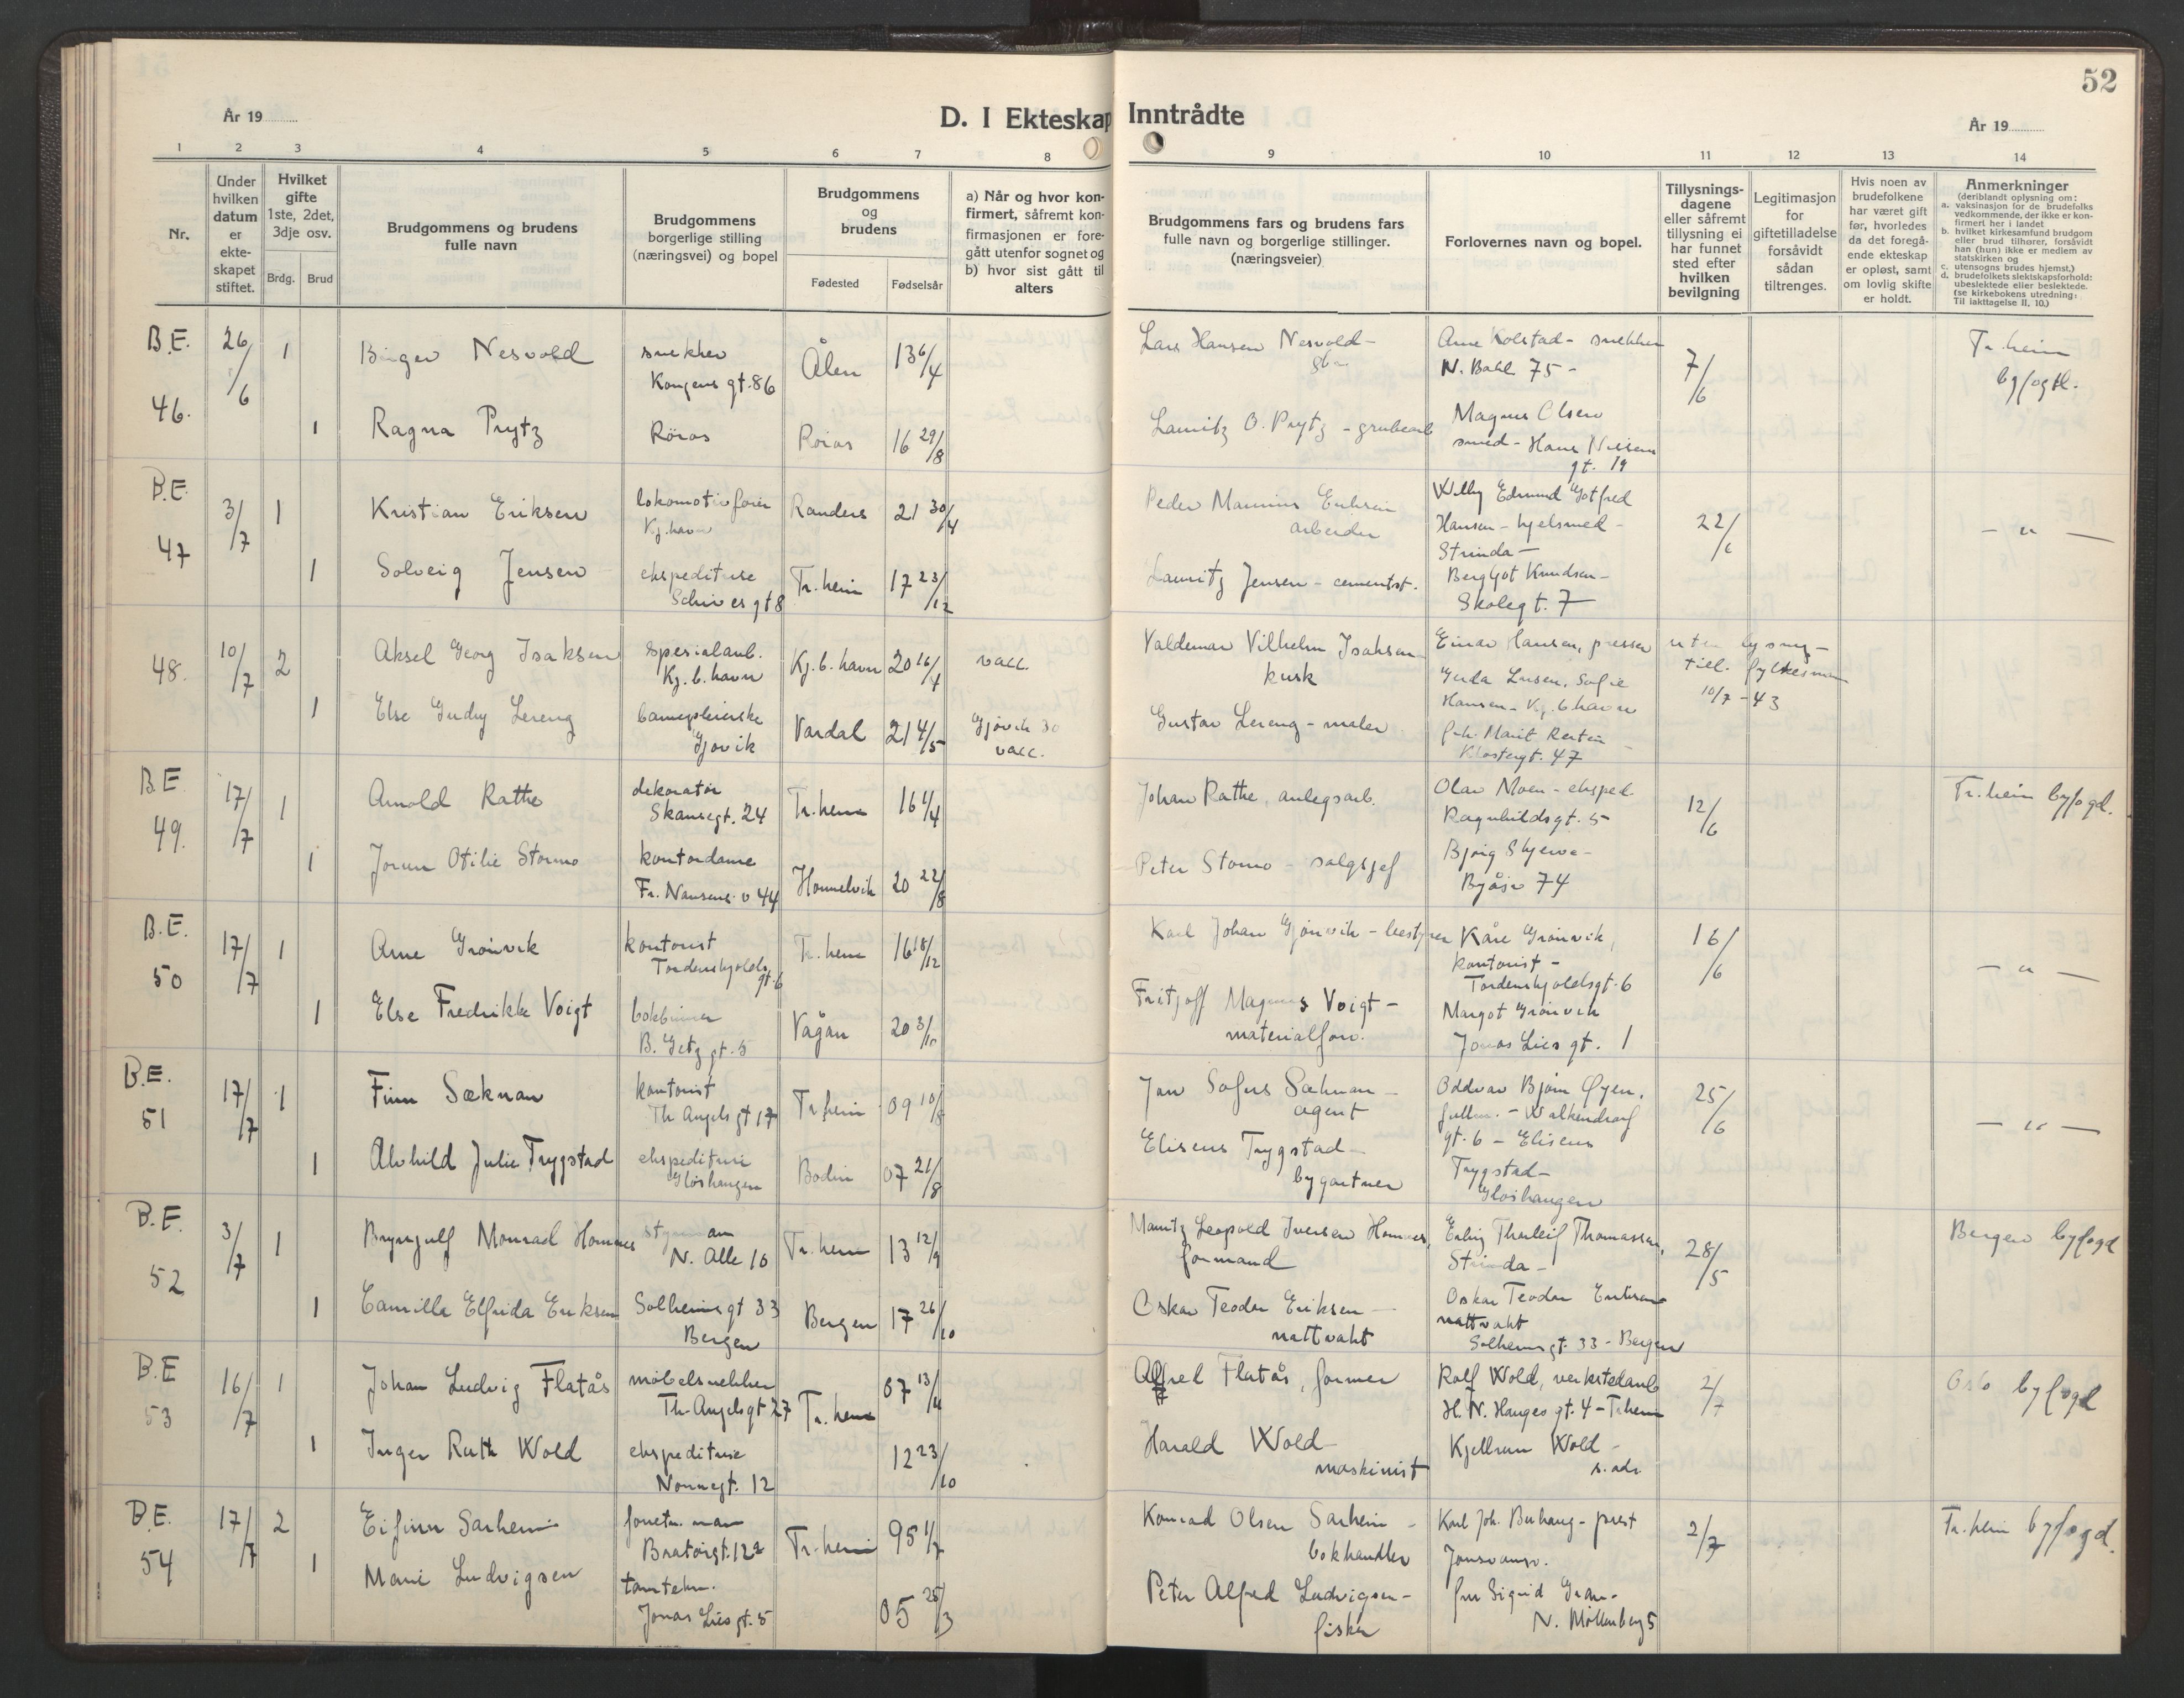 52
År 19
D. I Ekteskap Inntrådte
År 19
1 2 3 4 5 6 7 8 9 10 11 12 13 14
Nr.
Under hvilken datum er ekte-skapet stiftet.
Hvilket gifte 1ste, 2det, 3dje osv.
Brdg. Brud
Brudgommens og brudens fulle navn
Brudgommens borgerlige stilling (næringsvei) og bopel
Brudgommens og brudens
Fødested Fødselsår
a) Når og hvor kon-firmert, såfremt kon-firmasjonen er fore-gått utenfor sognet og
b) hvor sist gått til alters
Brudgommens fars og brudens fars fulle navn og borgerlige stillinger. (næringsveier)
Forlovernes navn og bopel.
Tillysnings-dagene eller såfremt tillysning ei har funnet sted efter hvilken bevilgning
Legitimasjon for giftetilladelse forsåvidt sådan tiltrenges.
Hvis noen av brudefolkene har været gift før, hvorledes da det foregå-ende ekteskap er opløst, samt om lovlig skifte er holdt.
Anmerkninger
(deriblandt oplysning om:
a. vaksinasjon for de brudefolks vedkommende, der ikke er kon-firmert her i landet
b. hvilket kirkesamfund brudgom eller brud tilhører, forsåvidt han (hun) ikke er medlem av statskirken og
c. utensogns brudes hjemst.)
d. brudefolkets slektskapsforhold: ubeslektede eller beslektede.
(se kirkebokens utredning: Til iakttagelse II. 10.)
B.E. 46. 26/6 1 Birger Nesvold snekker Kongens gt. 86 Ålen 13 6/4 Lars Hansen Nesvold - Arne Kolstad - snekker N. Bakl. 75 - 7/6 Tr.heim byfogd.
1 Ragna Prytz Röros Röros 16 29/8 Lauritz O. Prytz - grubearb Magnus Olsen smed - Hans Nissens gt. 19
B.E. 47 3/7 1 Kristian Eriksen lokomotivförer Kj.havn Randers 21 30/4 Peder Marinus Eriksen arbeider Willy Edmund Gotfred Hansen - hjelsmed - Strinda - 22/6 - " -
1 Solveig Jensen ekspeditrise Schives gt 8 Tr.heim 17 23/12 Lauritz Jensen - cementst. Bergljot Knudsen - Skolegt. 7
48. 10/7 2 Aksel Georg Isaksen spesialarb. Kj.b.havn Kj.b.havn 20 16/4 vacc. Valdemar Vilhelm Isaksen kusk Einar Hansen, presser uten lysning - till. fylkesman 10/7 - 43
1 Else Gudny Lereng barnepleierske Gjøvik Vardal 21 4/5 Gjøvik 30 vacc. Gustav Lereng - maler Sofie Hansen - Kj.b.havn frk. Marit Klostergt. 47
B.E. 49. 17/7 1 Arnold Rathe dekoratør Skansegt. 24 Tr.heim 16 1/4 Johan Rathe, anlegsarb. Olav Moen - eksped. Ragnhildsgt. 5 12/6 Tr.heim byfogd.
1 Jorun Otilie Stormo kontordame Fr. Nansens v 44 Hommelvik 20 22/8 Peter Stormo - salgsjef Bjørg Skjerve - Byåsv 74
B.E. 50 17/7 1 Arne Grønvik kontorist Tordenskjolds gt. 6 Tr.heim 16 18/12 Karl Johan Grønvik - bestyrer Kåre Grønvik, kontorist - Tordenskjoldsgt. 6 16/6 - " -
1 Else Fredrikke Voigt bokbinner B. Getz gt. 5 Vågan 20 3/10 Fritjoff Magnus Voigt - materialforv. Margot Grønvik Jonas Lies gt. 1
B.E. 51 17/7 1 Finn Sæknan kontorist Th. Angels gt 17 Tr.heim 09 10/8 Jan Sofus Sæknan - agent Oddvar Bjørn Øyen, gt. 6 - Eliseus Trygstad - Gløshaugen 25/6 - " -
1 Alvhild Julie Trygstad ekspeditrise Gløshaugen Bodin 07 21/8 Eliseus Trygstad - bygartner
B.E. 52 3/7 1 Brynjulf Monrad Hommes styrman N. Alle 10 Tr.heim 13 12/9 Mauritz Leopold Iversen Hommes, formand Erling Thorleif Thomassen, Strinda - 28/5 Bergen byfogd
1 Camilla Elfrida Eriksen Solheimsgt 33 Bergen Bergen 17 26/10 Oskar Teodor Eriksen - nattvakt Oskar Teodor Eriksen nattvakt Solheimsgt. 33 - Bergen
B.E 53 16/7 1 Johan Ludvig Flatås møbelsnekker Th. Angelsgt 27 Tr.heim 07 13/4 Alfred Flatås, former Rolf Wold, verkstedarb H. N. Hauges gt. 4 - Tr.heim 2/7 Oslo byfogd
1 Inger Ruth Wold ekspeditrise Nonnegt. 12 12 23/10 Harald Wold - maskinist Kjellrun Wold - s. adr.
B.E. 54 17/7 2 Eifinn Sarheim forretn. man Bratørgt. 12 Tr.heim 95 1/7 Konrad Olsen Sarheim - bokhandler Karl Joh. Buhaug - prest Jonsvansv. 2/7 Tr.heim byfogd.
1 Marie Ludvigsen tanntekn. Jonas Lies gt. 5 05 25/3 Peter Alfred Ludvigsen - fisker fru Sigrid Gran - N. Møllenberg 5